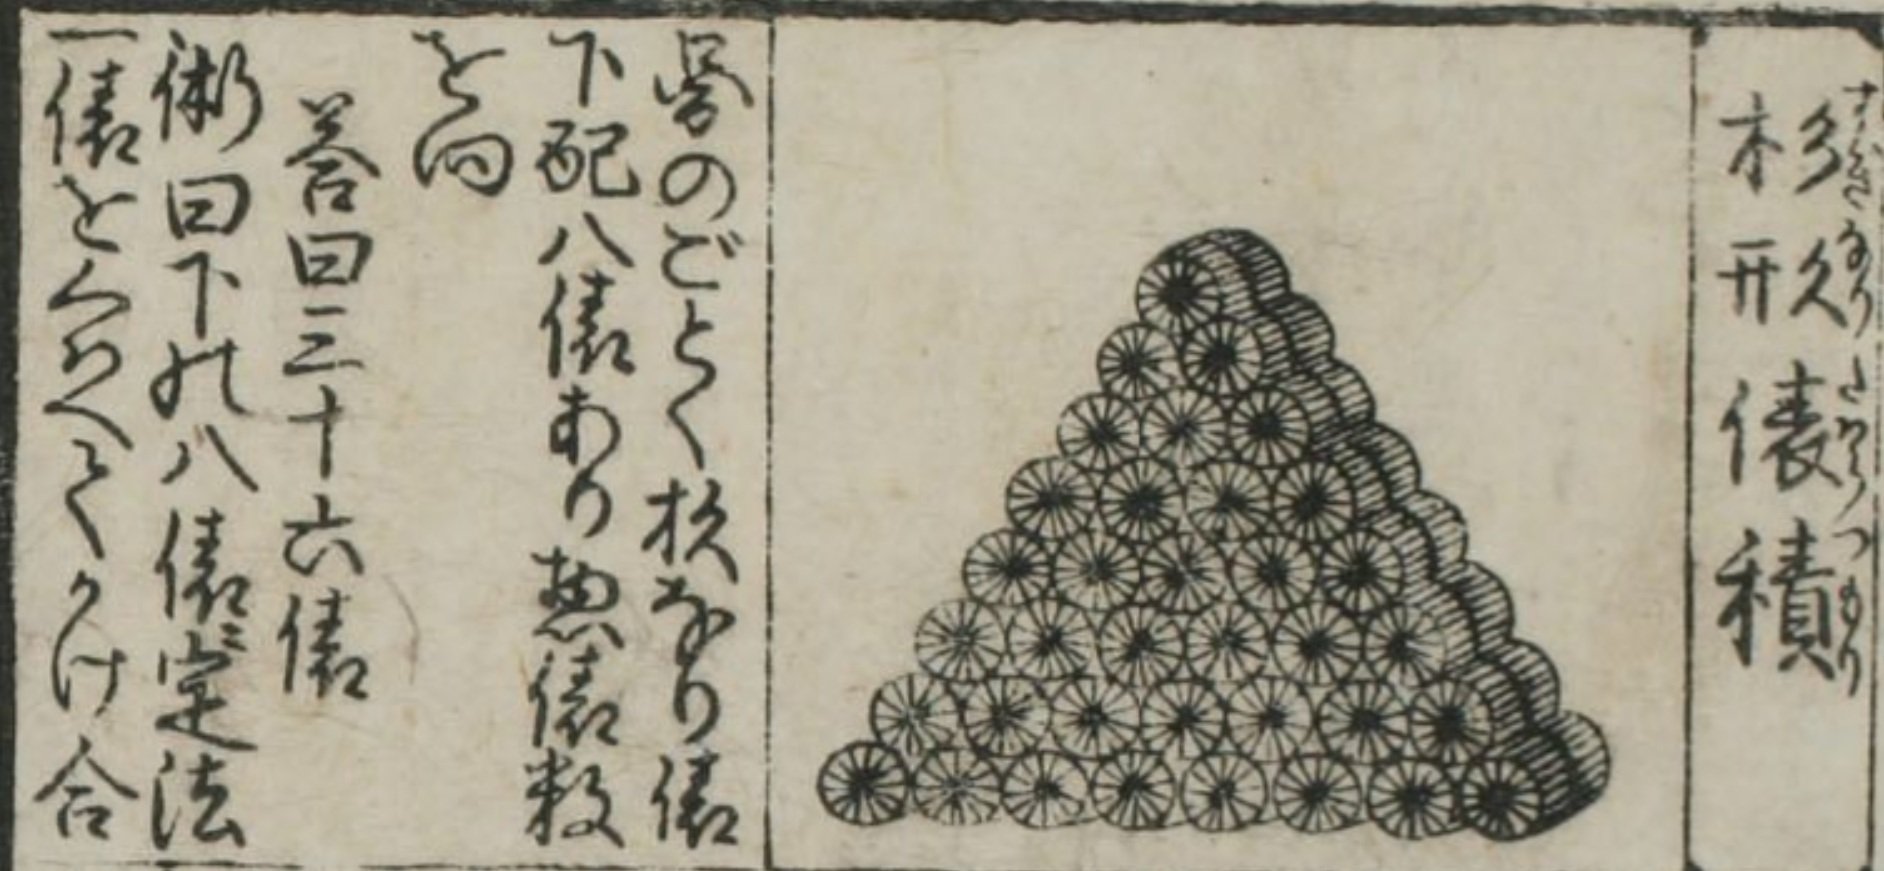 杉形俵積
すぎなりたわらつもり
図のごとく杉なり俵
下配八俵あり惣俵数
を問
答曰三十六俵
術曰下の八俵に定法
一俵をくわへてかけ合